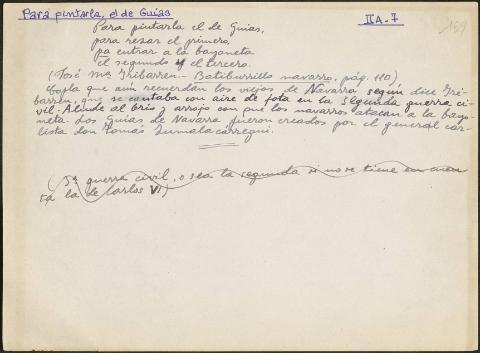 Para pintarla, el de Guías
II A-7
159
Para pintarla el de Guías,
para rezar el primero,
pa entrar a la bayoneta
el segundo y el tercero.
(José Mª Iribarren - Batiburrillo navarro, pág. 110)
Copla que aún recuerdan los viejos de Navarra según dice Iri-
barren, que se cantaba con aire de jota en la Segunda guerra ci-
vil. Alude al brío y arrojo con que los navarros atacan a la bayo-
neta. Los Guías de Navarra fueron creados por el general car-
lista don Tomás Zumalacárregui.
(3ª guerra civil, o sea la segunda si no se tiene en cuen
ta la de Carlos VI)